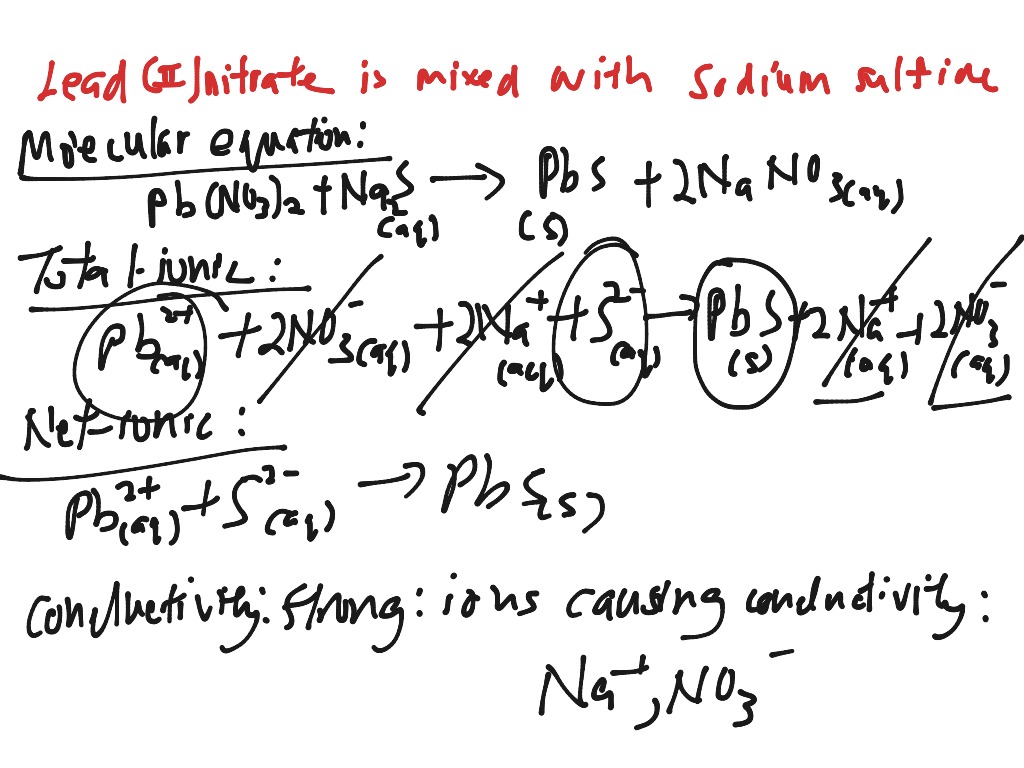 Lead (II) nitrate is mixed with sodium sulfide
Molecular equation:
Pb(NO₃)₂ + Na₂S(aq) → PbS(s) + 2NaNO₃(aq)
Total-ionic:
Pb²⁺(aq) + 2NO₃⁻(aq) + 2Na⁺(aq) + S²⁻(aq) → PbS(s) + 2Na⁺(aq) + 2NO₃⁻(aq)
Net-ionic:
Pb²⁺(aq) + S²⁻(aq) → PbS(s)
conductivity: strong: ions causing conductivity:
Na⁺, NO₃⁻